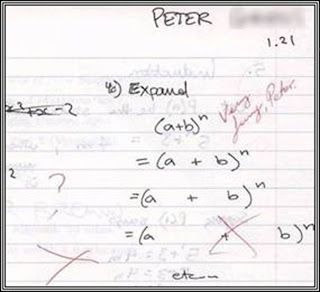 PETER
1.21
4c) Expand
x² + x - 2
(a+b)ⁿ
Very funny, Peter.
= (a + b)ⁿ
2 ?
= (a + b)ⁿ
= (a + b)ⁿ
etc...